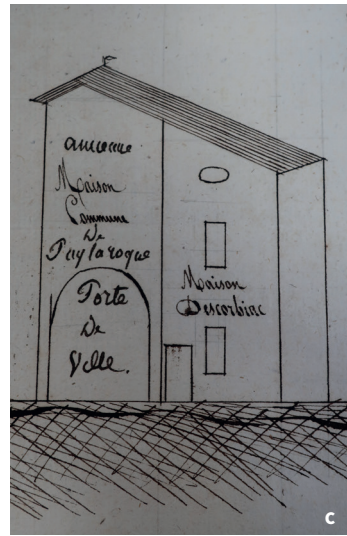 ancienne
Maison
Commune
De
Puylaroque
Porte
De
Ville.
Maison
Descorbiac
C